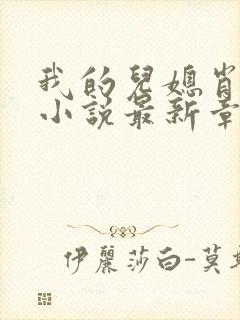 我的兒媳
小説最新章
伊麗莎白-莫